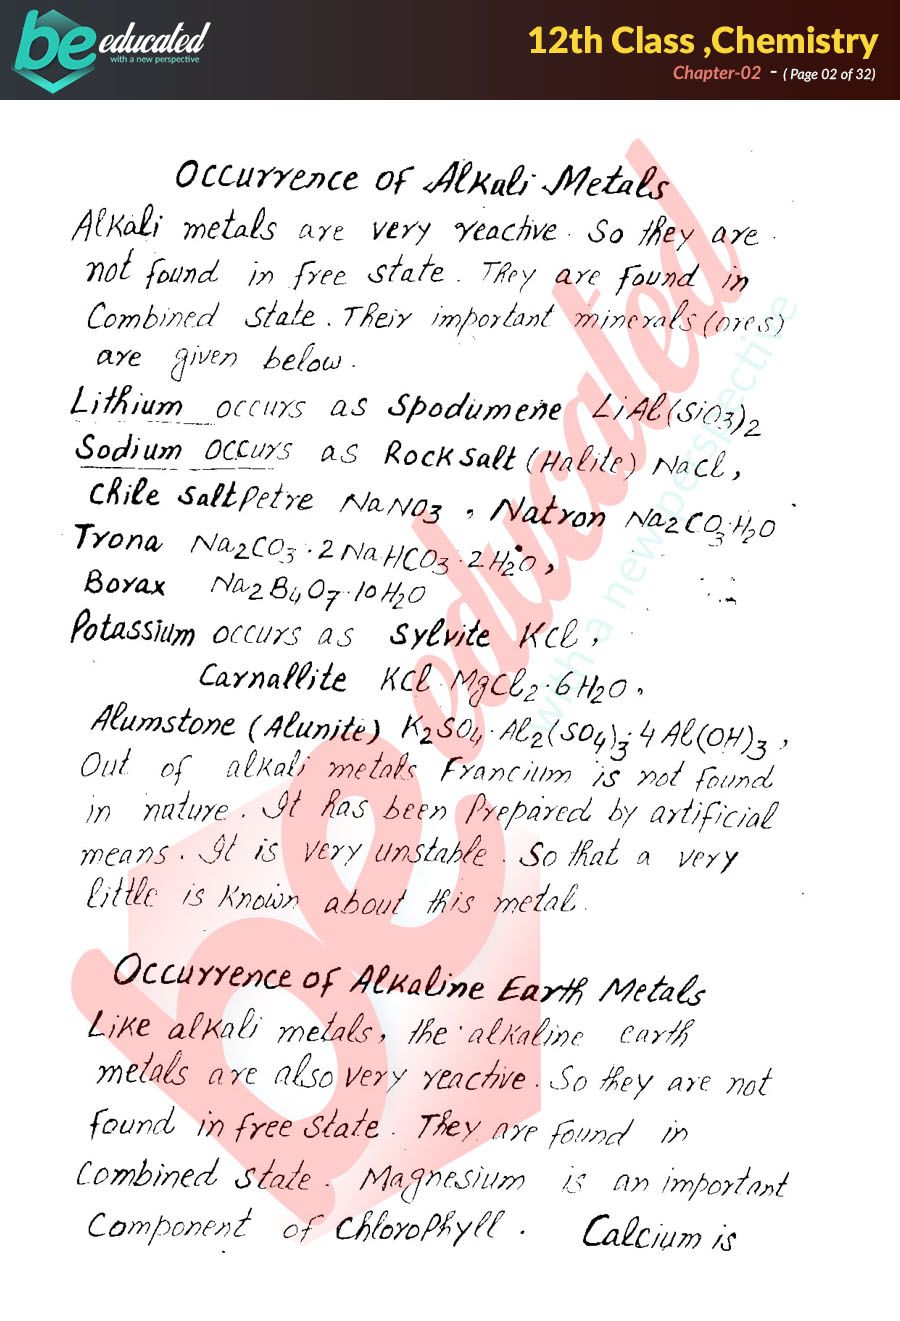 be educated
with a new perspective
12th Class ,Chemistry
Chapter-02 - ( Page 02 of 32)
Occurrence of Alkali Metals
Alkali metals are very reactive. So they are
not found in free state. They are found in
Combined state. Their important minerals (ores)
are given below.
Lithium occurs as Spodumene LiAl(SiO3)2
Sodium occurs as Rock salt (Halite) NaCl,
Chile saltpetre NaNO3, Natron Na2CO3·H2O
Trona Na2CO3·2NaHCO3·2H2O,
Borax Na2B4O7·10H2O
Potassium occurs as Sylvite KCl,
Carnallite KCl·MgCl2·6H2O,
Alumstone (Alunite) K2SO4·Al2(SO4)3·4Al(OH)3,
Out of alkali metals Francium is not found
in nature. It has been Prepared by artificial
means. It is very unstable. So that a very
little is known about this metal.
Occurrence of Alkaline Earth Metals
Like alkali metals, the alkaline earth
metals are also very reactive. So they are not
found in free state. They are found in
Combined state. Magnesium is an important
Component of Chlorophyll. Calcium is
be educated
with a new perspective